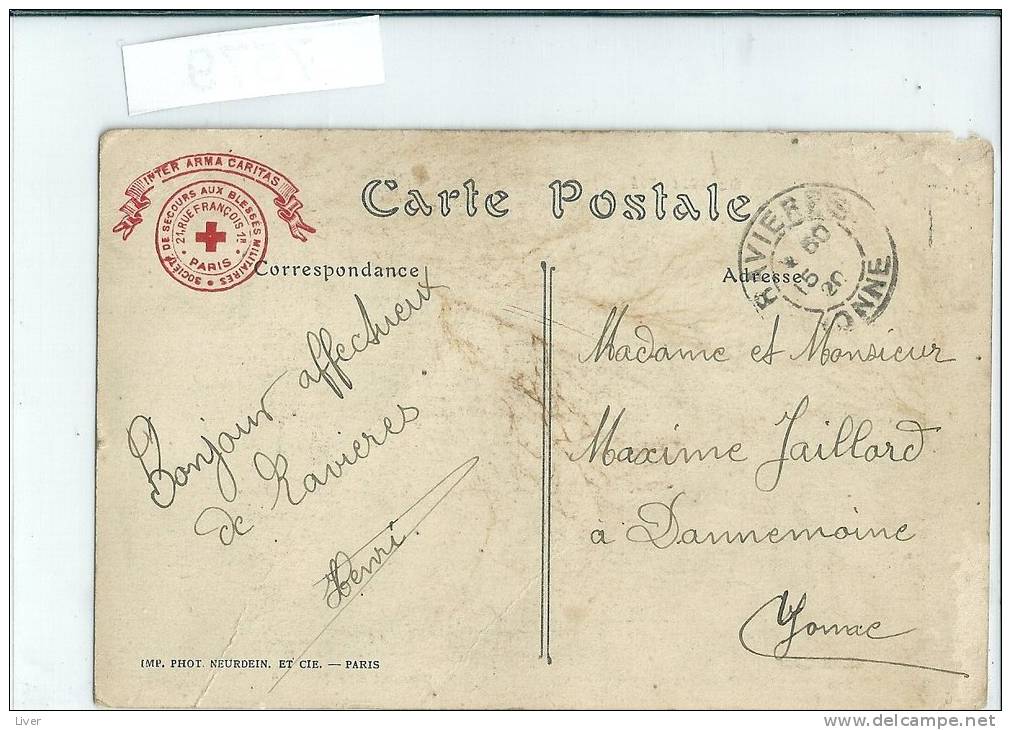 7579
INTER ARMA CARITAS
SOCIÉTÉ DE SECOURS AUX BLESSÉS MILITAIRES
21, RUE FRANÇOIS 1ER
PARIS
Carte Postale
RAVIERES
15 20
YONNE
Correspondance
Adresse
Bonjour affectueux
de Ravieres
Henri
Madame et Monsieur
Maxime Jaillard
à Dannemoine
Yonne
IMP. PHOT. NEURDEIN. ET CIE. — PARIS
Liver
delcampe.net